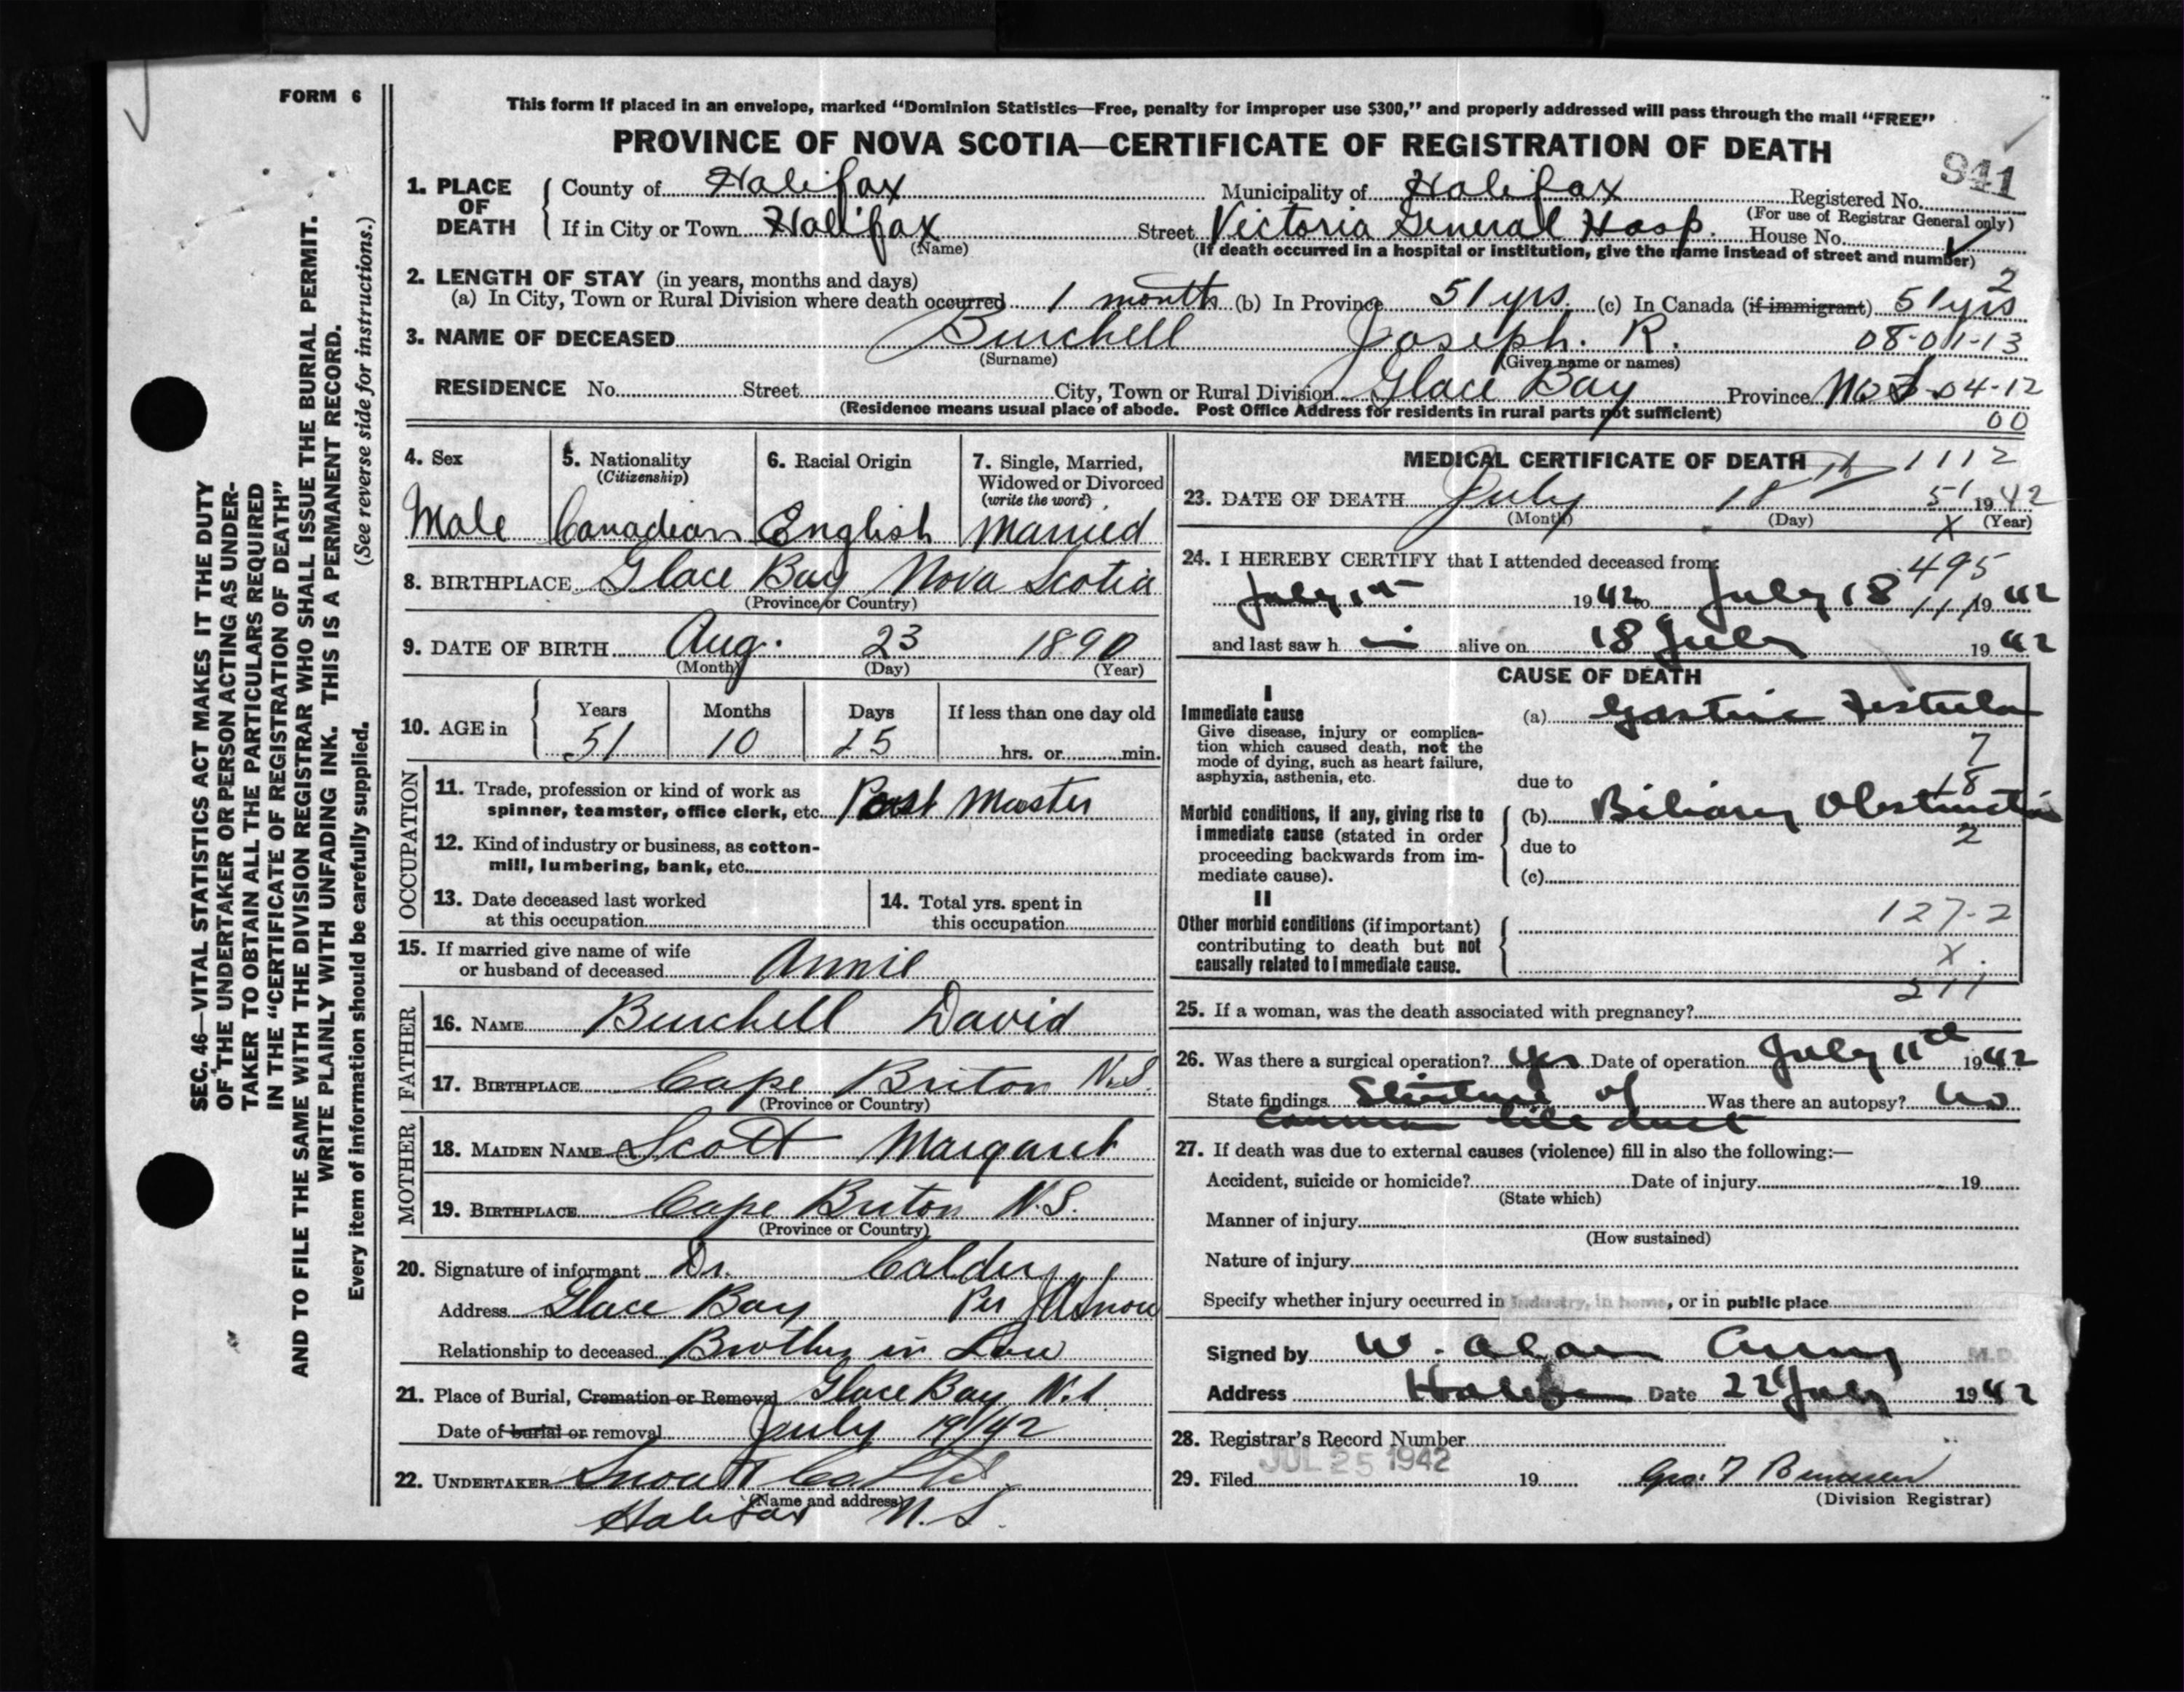 FORM 6
This form if placed in an envelope, marked “Dominion Statistics—Free, penalty for improper use $300,” and properly addressed will pass through the mail “FREE”
PROVINCE OF NOVA SCOTIA—CERTIFICATE OF REGISTRATION OF DEATH
941
1. PLACE OF DEATH
County of Halifax Municipality of Halifax Registered No.
(For use of Registrar General only)
If in City or Town Halifax Street Victoria General Hosp. House No.
(Name) (If death occurred in a hospital or institution, give the name instead of street and number)
2
2. LENGTH OF STAY (in years, months and days)
(a) In City, Town or Rural Division where death occurred 1 month (b) In Province 51 yrs. (c) In Canada (if immigrant) 51 yrs
3. NAME OF DECEASED Burchell Joseph. R. 08-01-13
(Surname) (Given name or names)
RESIDENCE No. Street City, Town or Rural Division Glace Bay Province N.S. 04-12
(Residence means usual place of abode. Post Office Address for residents in rural parts not sufficient) 00
4. Sex 5. Nationality (Citizenship) 6. Racial Origin 7. Single, Married, Widowed or Divorced (write the word)
Male Canadian English Married
8. BIRTHPLACE Glace Bay Nova Scotia
(Province or Country)
9. DATE OF BIRTH Aug. 23 1890
(Month) (Day) (Year)
10. AGE in Years Months Days If less than one day old
51 10 25 hrs. or min.
OCCUPATION
11. Trade, profession or kind of work as spinner, teamster, office clerk, etc. Post Master
12. Kind of industry or business, as cotton-mill, lumbering, bank, etc.
13. Date deceased last worked at this occupation
14. Total yrs. spent in this occupation
15. If married give name of wife or husband of deceased Annie
FATHER
16. NAME Burchell David
17. BIRTHPLACE Cape Briton N.S.
(Province or Country)
MOTHER
18. MAIDEN NAME Scott Margaret
19. BIRTHPLACE Cape Briton N.S.
(Province or Country)
20. Signature of informant Dr. Calder
Address Glace Bay Per JA Snow
Relationship to deceased Brother in Law
21. Place of Burial, Cremation or Removal Glace Bay N.S.
Date of burial or removal July 19/42
22. UNDERTAKER Snow & Co Ltd.
(Name and address)
Halifax N. S.
MEDICAL CERTIFICATE OF DEATH 1112
23. DATE OF DEATH July 18 th 51 1942
(Month) (Day) X (Year)
24. I HEREBY CERTIFY that I attended deceased from: 495
July 1st 1942 to July 18 11/ 1942
and last saw h im alive on 18 July 1942
CAUSE OF DEATH
I
Immediate cause
Give disease, injury or complication which caused death, not the mode of dying, such as heart failure, asphyxia, asthenia, etc.
(a) Gastric Fistula
7
due to 18
Morbid conditions, if any, giving rise to immediate cause (stated in order proceeding backwards from immediate cause).
(b) Biliary Obstruction
due to 2
(c)
II
Other morbid conditions (if important) contributing to death but not causally related to immediate cause.
127-2
X
211
25. If a woman, was the death associated with pregnancy?
26. Was there a surgical operation? Yes Date of operation July 11th 1942
State findings Stricture of Was there an autopsy? No
Common bile duct
27. If death was due to external causes (violence) fill in also the following:—
Accident, suicide or homicide? Date of injury 19
(State which)
Manner of injury
(How sustained)
Nature of injury
Specify whether injury occurred in industry, in home, or in public place
Signed by W. Alan Curry M.D.
Address Halifax Date 22 July 1942
28. Registrar's Record Number
29. Filed JUL 25 1942 19 Geo: F
(Division Registrar)
SEC. 46—VITAL STATISTICS ACT MAKES IT THE DUTY
OF THE UNDERTAKER OR PERSON ACTING AS UNDER-
TAKER TO OBTAIN ALL THE PARTICULARS REQUIRED
IN THE “CERTIFICATE OF REGISTRATION OF DEATH”
AND TO FILE THE SAME WITH THE DIVISION REGISTRAR WHO SHALL ISSUE THE BURIAL PERMIT.
WRITE PLAINLY WITH UNFADING INK. THIS IS A PERMANENT RECORD.
Every item of information should be carefully supplied. (See reverse side for instructions.)